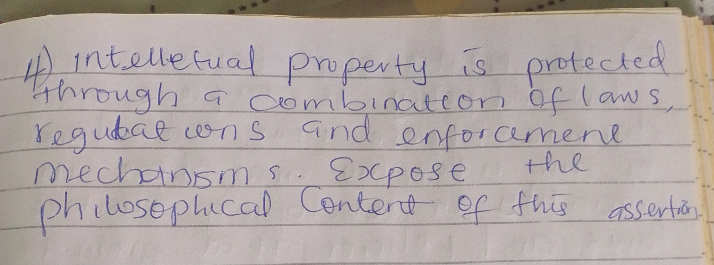 4) intellectual property is protected
through a combination of laws,
regulations and enforcement
mechanisms. Expose the
philosophical Content of this assertion